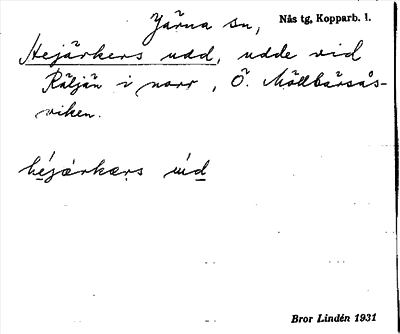 Järna sn, Nås tg, Kopparb. l.
Hejärkers udd, udde vid
Räljän i norr, Ö. Möllbärsås-
viken.
héjærkærs úd
Bror Lindén 1931